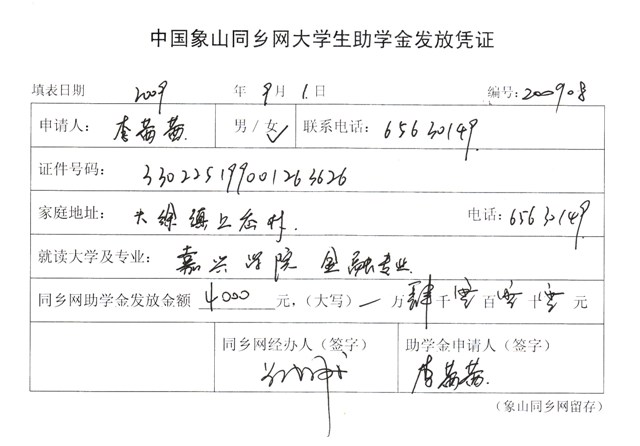 中国象山同乡网大学生助学金发放凭证
填表日期 2009 年 9 月 1 日 编号: 200908
申请人: 李茜茜 男 / 女 ✓ 联系电话: 65630149
证件号码: 330225199001263626
家庭地址: 大徐镇上 村 电话: 65630149
就读大学及专业: 嘉兴学院 金融专业
同乡网助学金发放金额 4000 元,(大写) 一 万 肆 千 零 百 零 十 零 元
同乡网经办人(签字) 助学金申请人(签字)
李茜茜
(象山同乡网留存)